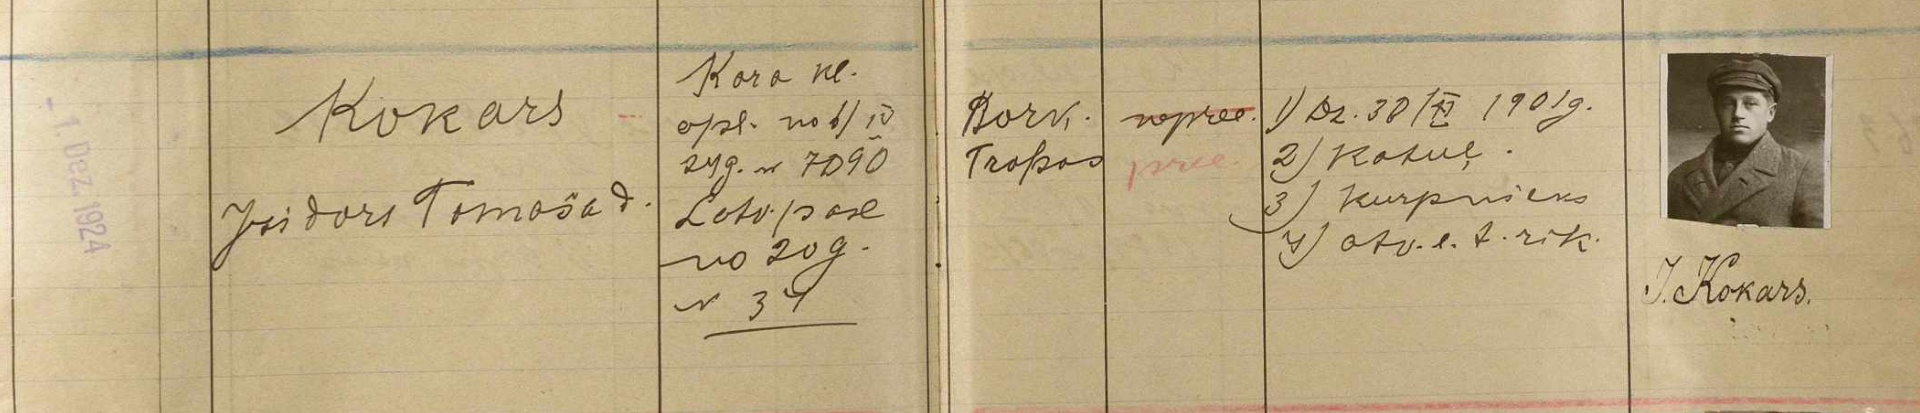 - 1. Dez. 1924
Kokars
Isidors Tomaša d.
Kara kl.
apl. no 6/IV
24g. N 7090
Latv. pase
no 20g.
N 34
Bork.
Tropos
neprec.
prec.
1) Dz. 30/XI 1901g.
2) Katuļ.
3) Kurpnieks
4) atv. l. t. rīk.
J. Kokars.